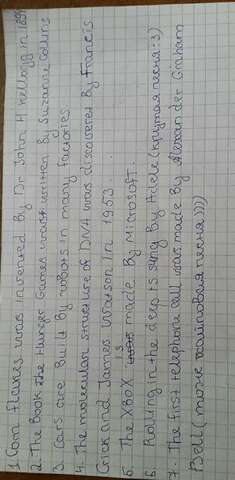 1 Corn flakes was invented By Dr John H Kellogg in 1894
2. The Book the Hunger Games was written By Suzanne Collins
3. Cars are Built By robots in many factories.
4. The molecular structure of DNA was discovered By Francis
Crick and James Watson in 1953.
5. The XBOX is made By Microsoft.
6 Rolling in the deep is sung By Adele (крутая песня :з)
7. The first telephone call was made By Alexander Graham
Bell (тоже хитовая песня))))